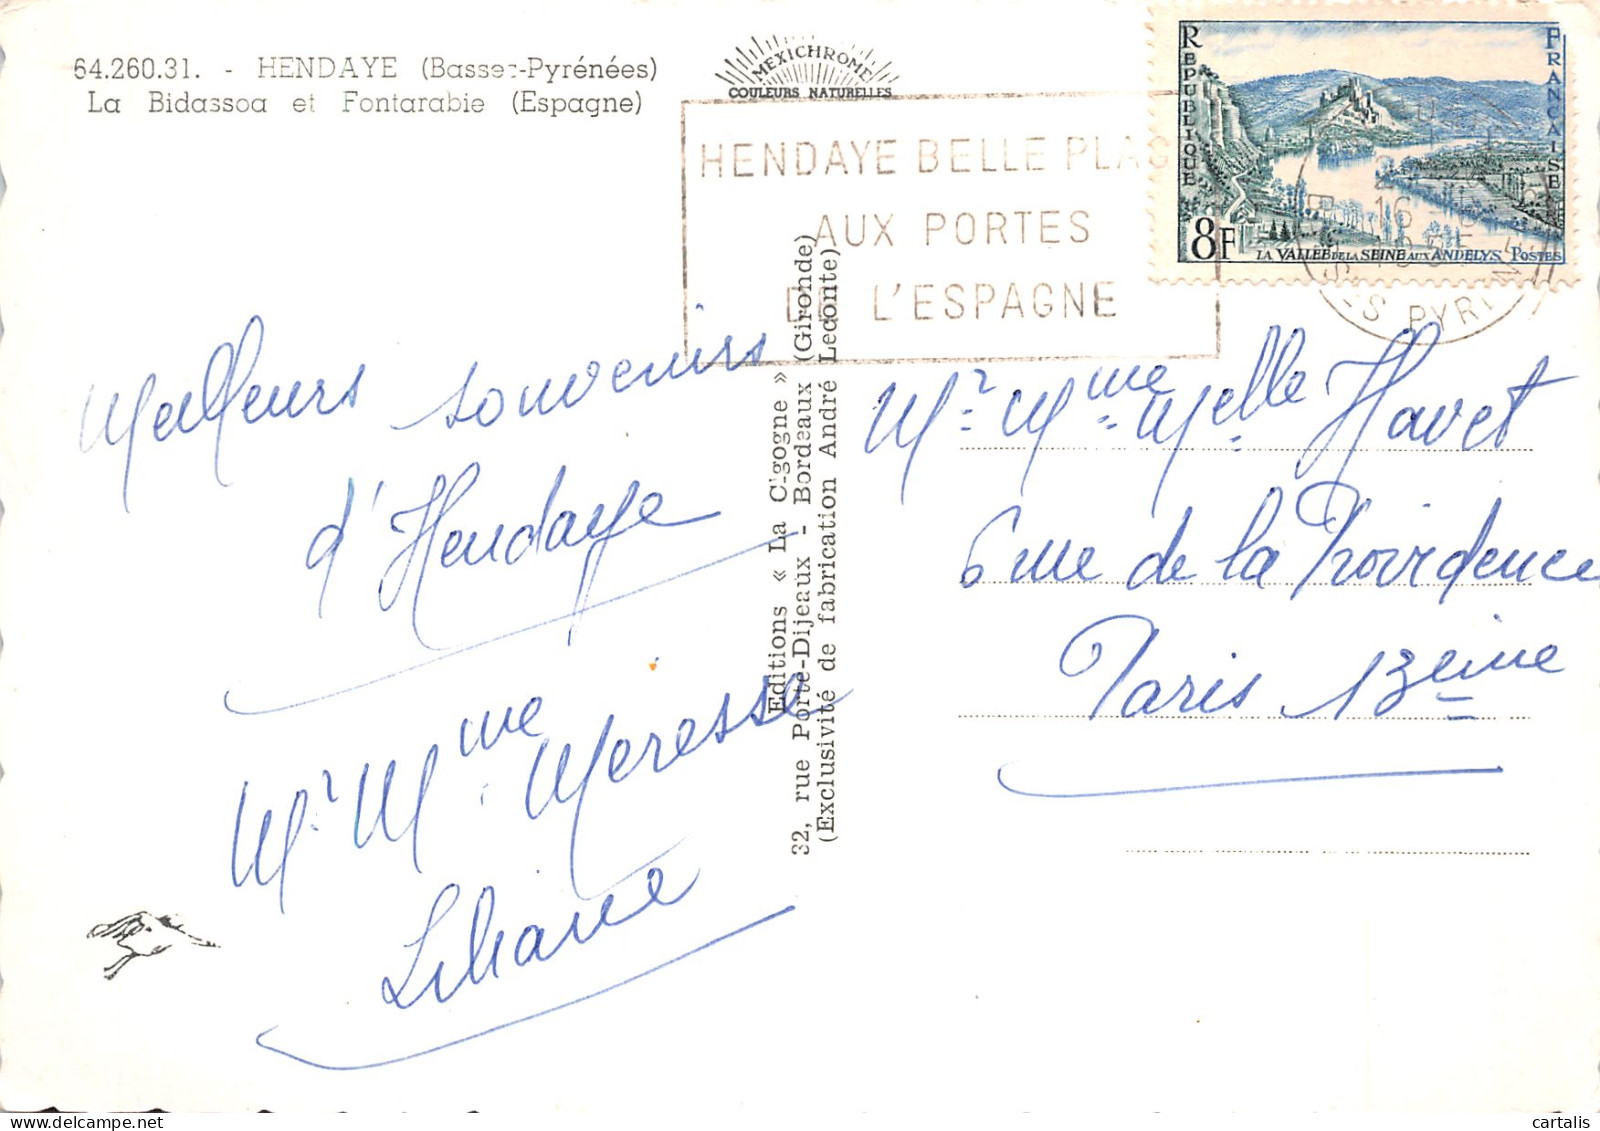 64.260.31. - HENDAYE (Basses-Pyrénées)
La Bidassoa et Fontarabie (Espagne)
MEXICHROME
COULEURS NATURELLES
HENDAYE BELLE PLAG
AUX PORTES
DE L'ESPAGNE
RÉPUBLIQUE
FRANÇAISE
8F
LA VALLÉE DE LA SEINE AUX ANDELYS POSTES
16
PYR
Meilleurs souvenirs
d'Hendaye
Mr Mme Meresse
Liliane
Editions « La Cigogne » (Gironde)
32, rue Porte-Dijeaux - Bordeaux
(Exclusivité de fabrication André Ledonte)
Mr Mme Melle Havet
6 rue de la Providence
Paris 13eme
cartalis